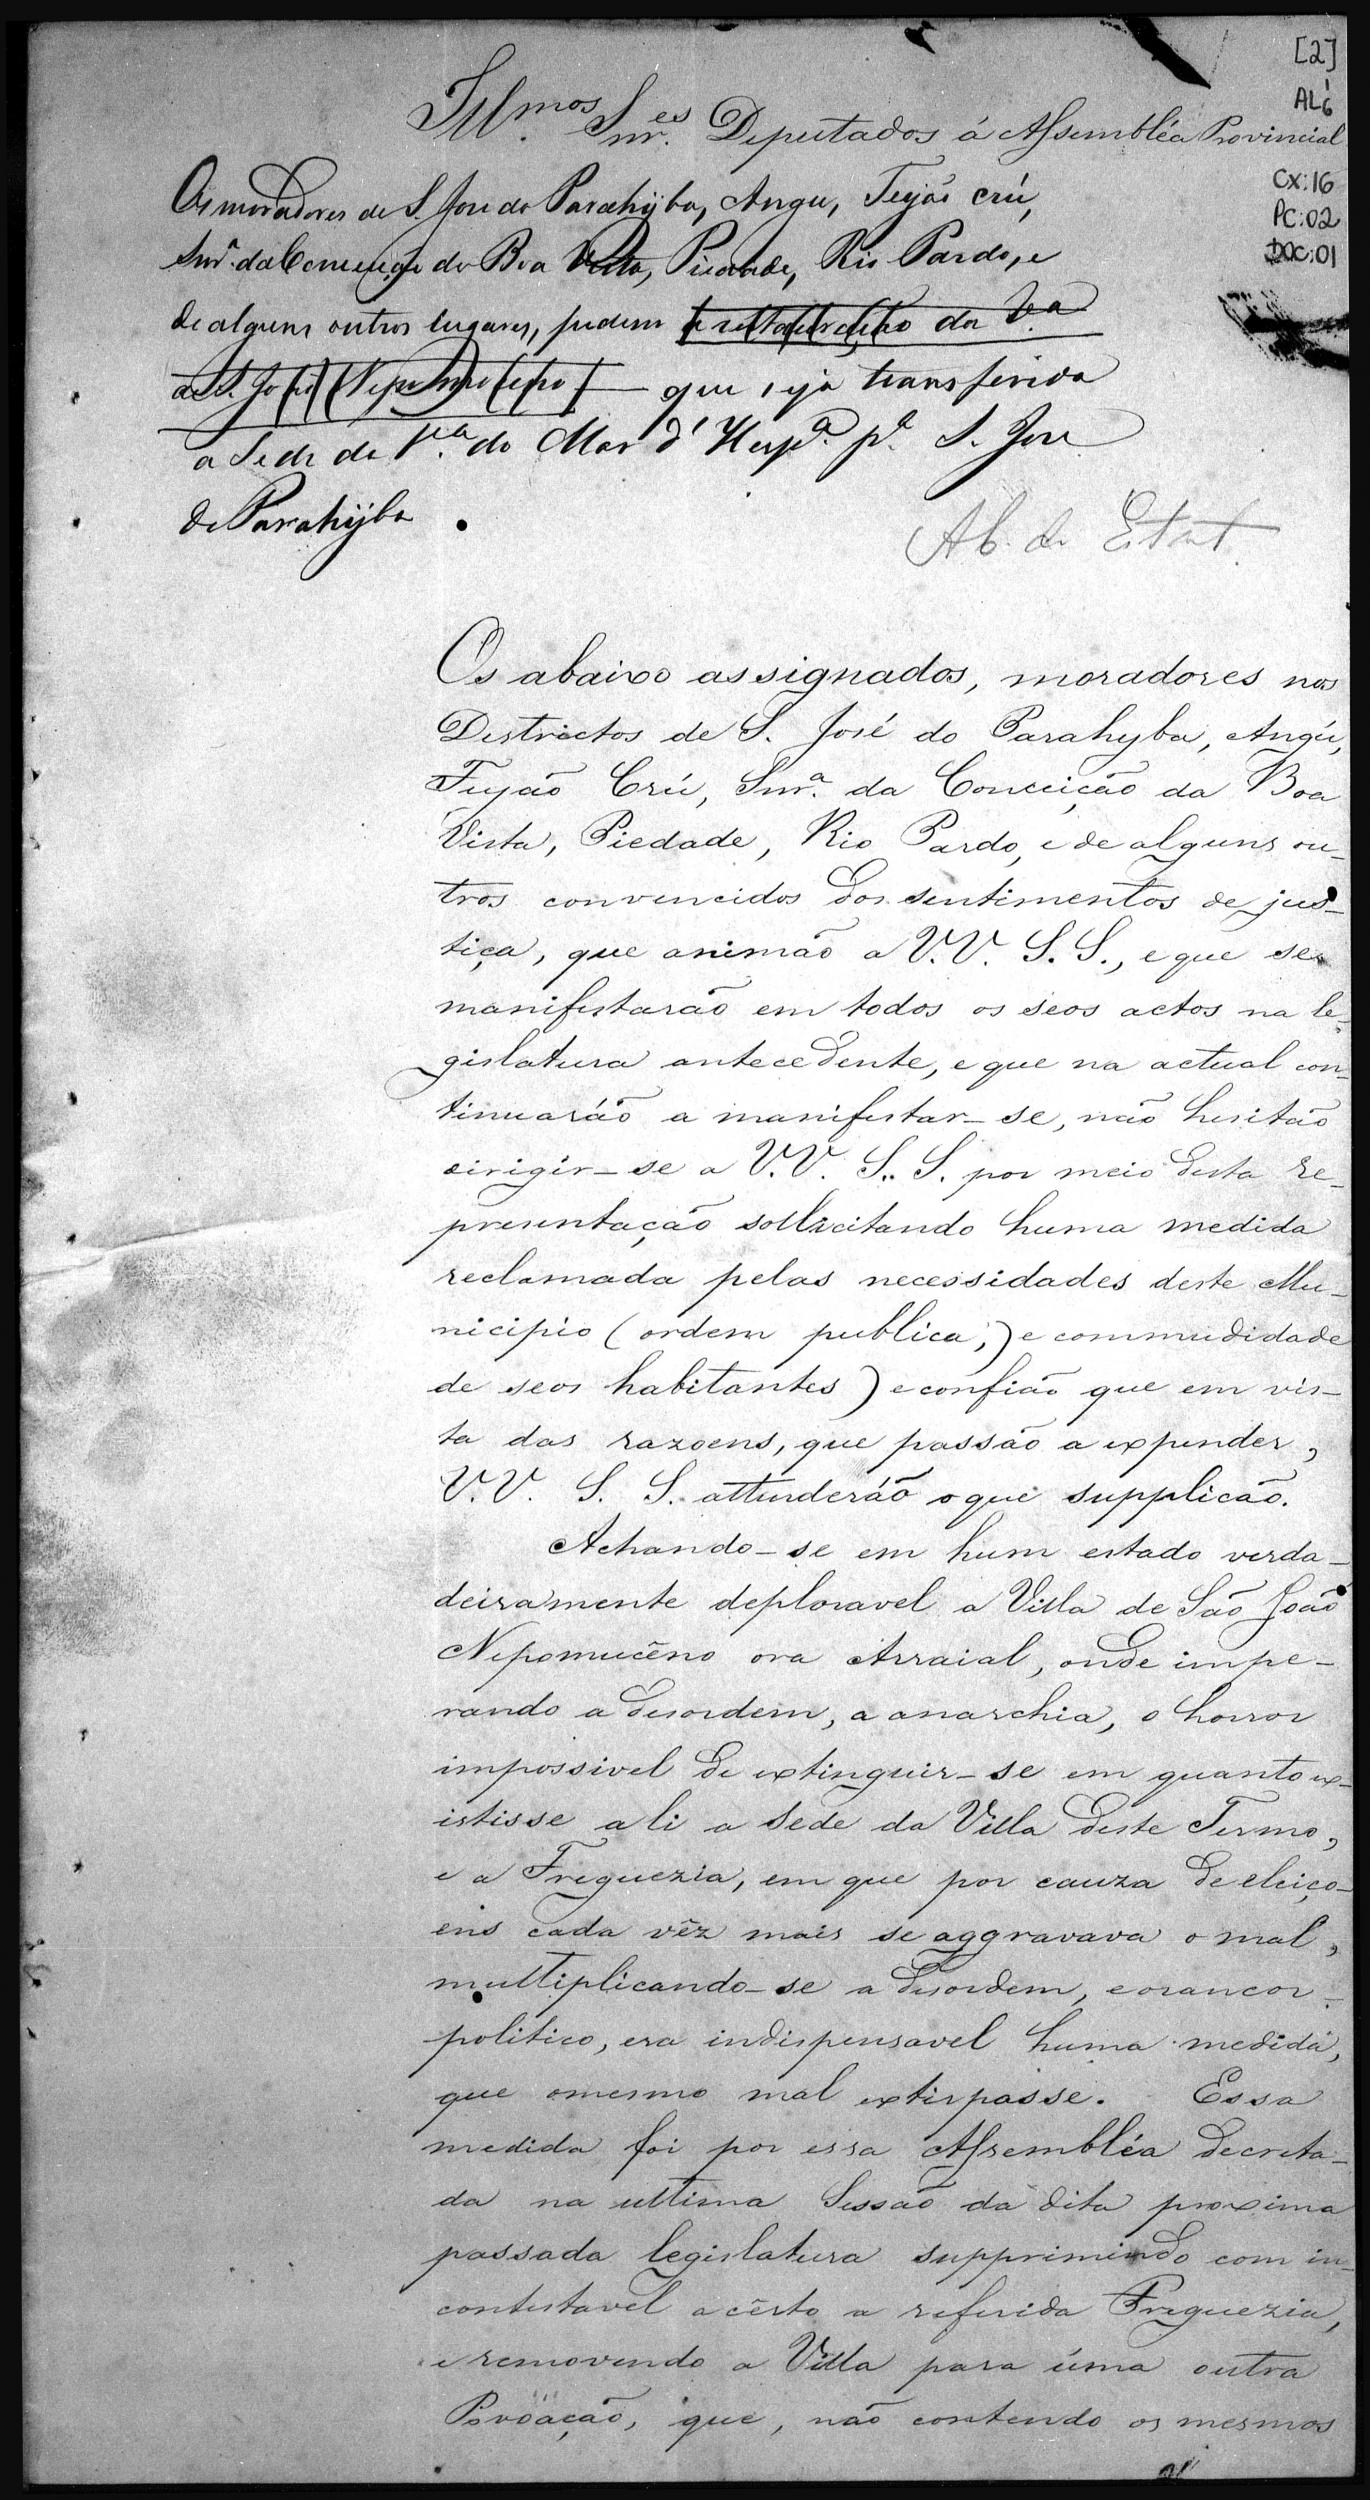 [2]
AL6
Cx:16
PC:02
DOC:01
Ill.mos Snr.es Deputados á Assembléa Provincial
Os moradores de S. José do Parahÿba, Angu, Feijão crú,
Snr.ª da Conceição da Boa Vista, Piedade, Rio Pardo, e
de alguns outros lugares, pedem a restauração da V.a
de S. João Nepomuceno que seja transferida
a Sede da V.a do Mar d'Hesp.ª p.ª S. José
de Parahÿba
Os abaixo assignados, moradores nos
Destrictos de S. José do Parahyba, Angú,
Fejão Crú, Snr.ª da Conceição da Boa
Vista, Piedade, Rio Pardo, e de alguns ou-
tros convencidos dos sentimentos de jus-
tiça, que animão a V.V. S.S., e que se
manifestarão em todos os seos actos na le-
gislatura antecedente, e que na actual con-
tinuaráõ a manifestar-se, não hesitão
dirigir-se a V.V. S.S. por meio desta re-
presentação sollicitando huma medida
reclamada pelas necessidades deste Mu-
nicipio (ordem publica,) e commudidade
de seos habitantes) e confião que em vis-
ta das razoens, que passão a expender,
V.V. S. S. attenderáõ o que supplicão.
Achando-se em hum estado verda-
deiramente deploravel a Villa de São João
Nepomucêno ora Arraial, onde impe-
rando a desordem, a anarchia, o horror
impossivel de extinguir-se em quanto ex-
istisse ali a Sede da Villa deste Termo,
e a Freguezia, em que por cauza de eleiço-
ens cada vêz mais se aggravava o mal,
multiplicando-se a desordem, e o rancor
politico, era indispensavel huma medida,
que o mesmo mal extirpasse. Essa
medida foi por essa Assembléa decreta-
da na ultima Sessão da dita proxima
passada legislatura supprimindo com in-
contestavel acêrto a referida Freguezia,
e removendo a Villa para úma outra
Povoação, que, não contendo os mesmos